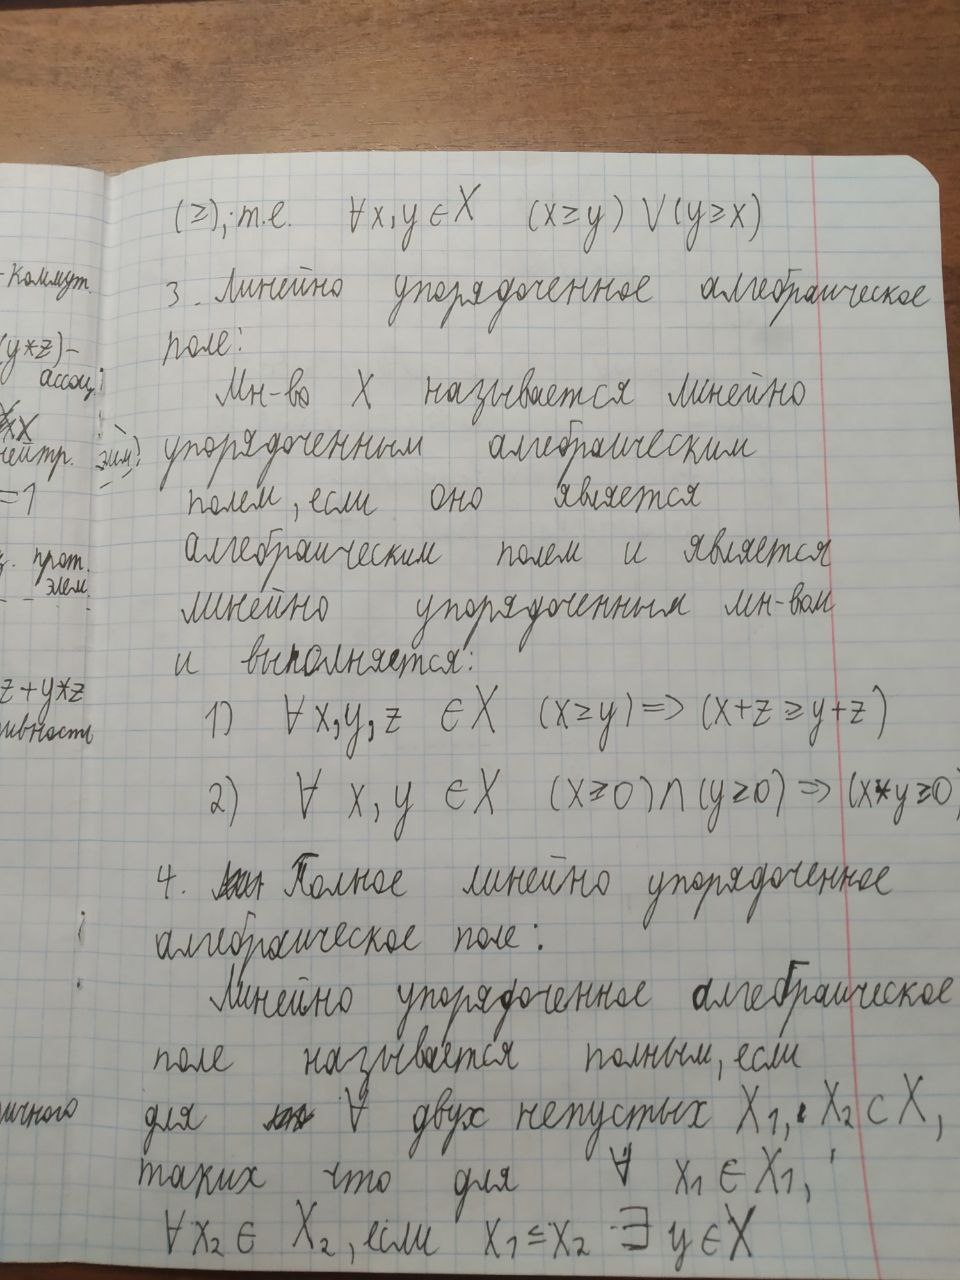 -коммут.
(y*z)-
ассоц.
нейтр. элем.
=1
прот.
элем.
z+y*z
(≥); т.е. ∀x,y∈X (x≥y) V (y≥x)
3. Линейно упорядоченное алгебраическое
поле:
Мн-во X называется линейно
упорядоченным алгебраическим
полем, если оно является
алгебраическим полем и является
линейно упорядоченным мн-вом
и выполняется:
1) ∀x,y,z ∈X (x≥y)=>(x+z≥y+z)
2) ∀ x,y ∈X (x≥0)∩(y≥0)=>(x*y≥0)
4. Полное линейно упорядоченное
алгебраическое поле:
Линейно упорядоченное алгебраическое
поле называется полным, если
для ∀ двух непустых X₁, X₂⊂X,
таких что для ∀ x₁∈X₁,
∀x₂∈ X₂, если x₁≤x₂ ∃ y∈X